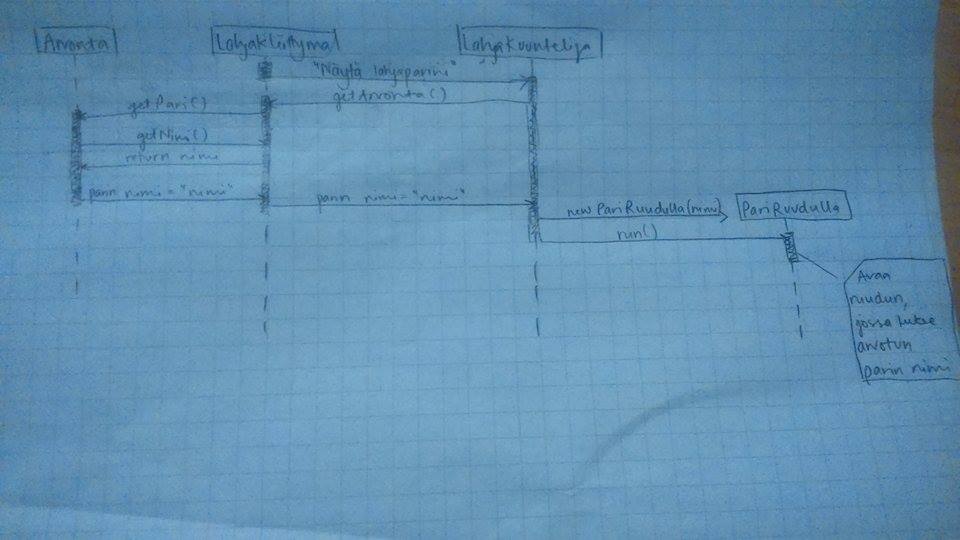 Arvonta
LahjaKäliittymä
LahjaKuuntelija
"Näytä lahjaparini"
getArvonta()
getPari()
getNimi()
return nimi
parin nimi = "nimi"
parin nimi = "nimi"
new PariRuudulla(nimi)
PariRuudulla
run()
Avaa
ruudun,
jossa lukee
arvotun
parin nimi